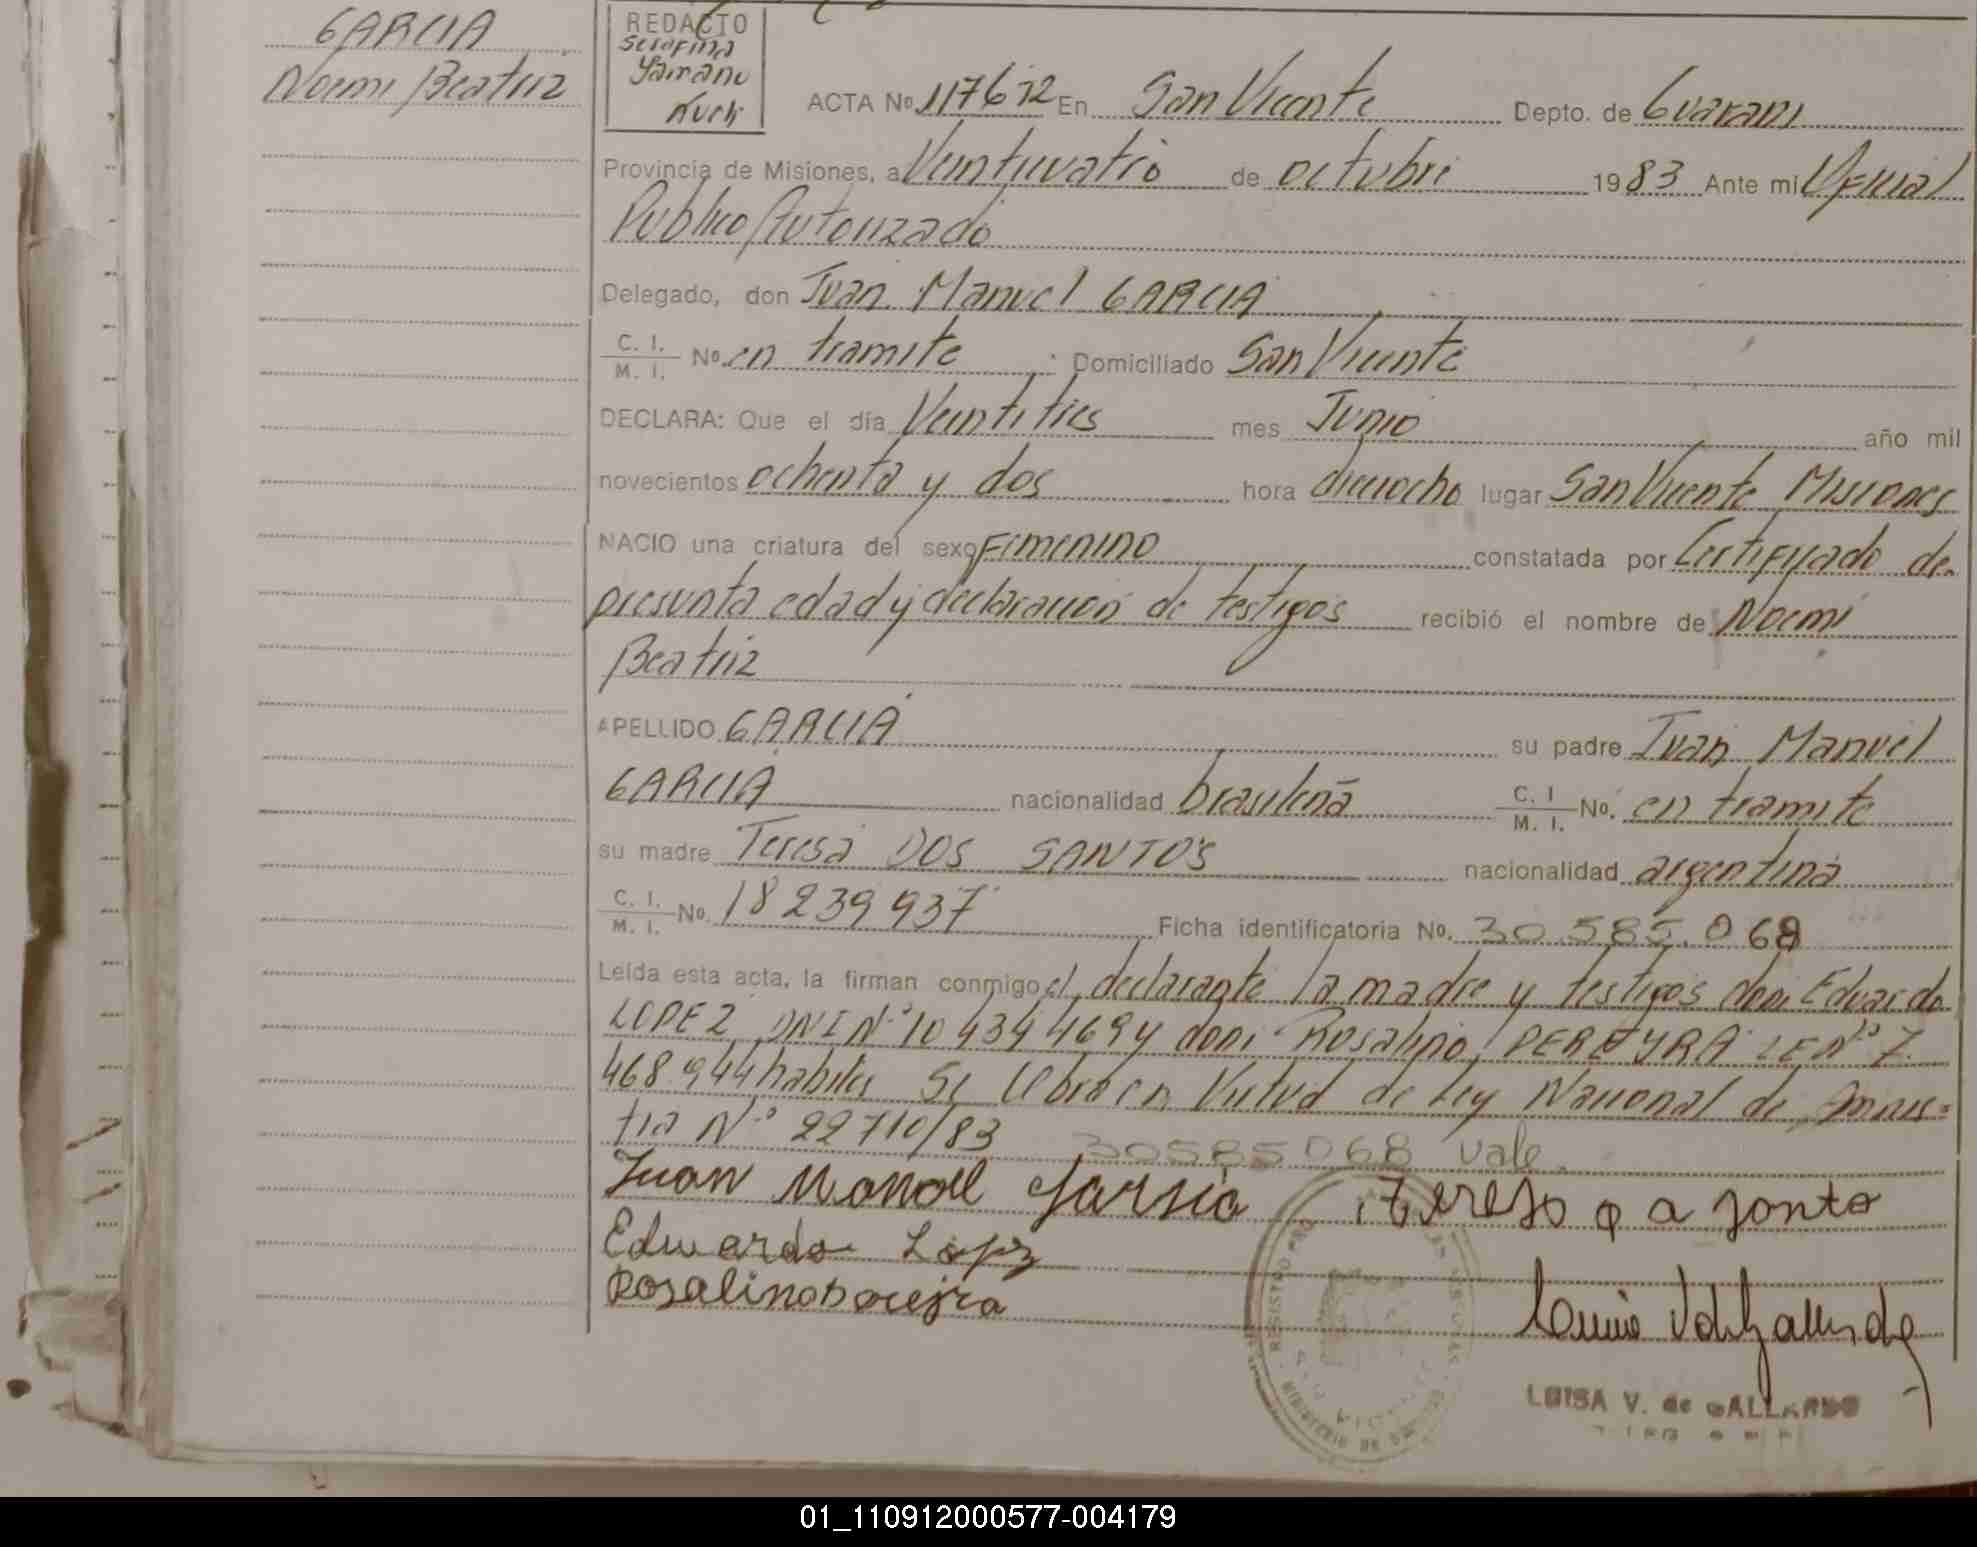 GARCIA
Noemi Beatriz
REDACTO
Serafina
ACTA No. 1176 72 En San Vicente Depto. de Guarani
Provincia de Misiones, a Veinticuatro de octubre 1983 Ante mi Oficial
Publico Autorizado
Delegado, don Juan Manuel GARCIA
C. I. / M. I. No. en tramite Domiciliado San Vicente
DECLARA: Que el día Veintitres mes Junio año mil
novecientos ochenta y dos hora dieciocho lugar San Vicente Misiones
NACIO una criatura del sexo Femenino constatada por Certificado de
presunta edad y declaracion de testigos recibió el nombre de Noemi
Beatriz
APELLIDO GARCIA su padre Juan Manuel
GARCIA nacionalidad brasileña C. I / M. I. No. en tramite
su madre Teresa DOS SANTOS nacionalidad argentina
C. I. / M. I. No. 18 239 937 Ficha identificatoria No. 30.585.068
Leída esta acta, la firman conmigo el declarante la madre y testigos don Eduardo
LOPEZ DNI Nº 10 434 469 y don Rosalino PEREYRA LE Nº 7.
468.944 habiles Se labra en Virtud de Ley Nacional de Amnis=
tia Nº 22710/83 30585068 vale
Juan Manoel Garsia
Eduardo Lopez
Rosalino Pereyra
LUISA V. de GALLARDO
01_110912000577-004179